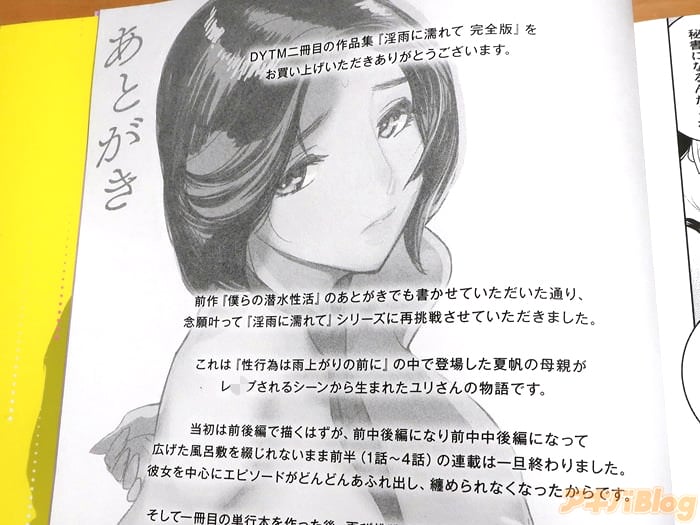 あとがき
DYTM二冊目の作品集『淫雨に濡れて 完全版』を
お買い上げいただきありがとうございます。
前作『僕らの潜水性活』のあとがきでも書かせていただいた通り、
念願叶って『淫雨に濡れて』シリーズに再挑戦させていただきました。
これは『性行為は雨上がりの前に』の中で登場した夏帆の母親が
レ プされるシーンから生まれたユリさんの物語です。
当初は前後編で描くはずが、前中後編になり前中中後編になって
広げた風呂敷を綴じれないまま前半（1話〜4話）の連載は一旦終わりました。
彼女を中心にエピソードがどんどんあふれ出し、纏められなくなったからです。
そして一冊目の単行本を作った後、
アキバBlog